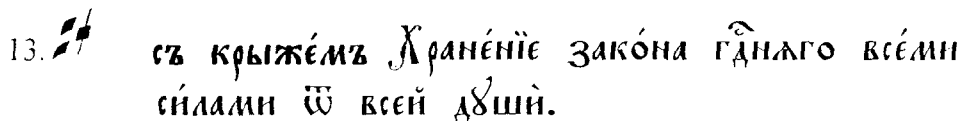 13. съ крыже́мъ Хране́нїе зако́на гдⷭ҇нѧго все́ми
си́лами ѿ всей дꙋшѝ.